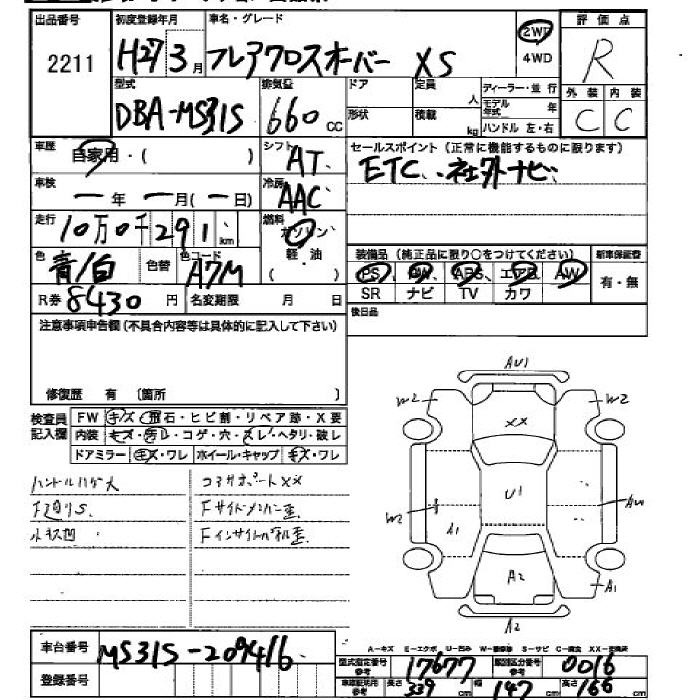 出品番号 初度登録年月 車名・グレード 2WD 評価点
2211 H27 3月 フレアクロスオーバー XS 4WD R
型式 排気量 ドア 定員 人 ディーラー・並 行 外装 内装
DBA-MS31S 660cc 形状 積載 kg モデル年式 年 C C
ハンドル 左・右
車歴 自家用・( ) シフト AT セールスポイント(正常に機能するものに限ります)
車検 ー年 ー月(ー日) 冷房 AAC ETC、社外ナビ
走行 10万0千291km 燃料 ガソリン
軽・油
( )
色 青/白 色替 色コード A7M 装備品(純正品に限り○をつけてください) 新車保証書
PS PW ABS エアB AW 有・無
R券 8430円 名変期限 月 日 SR ナビ TV カワ
注意事項申告欄(不具合内容等は具体的に記入して下さい) 後日品
修復歴 有 〔箇所 〕
検査員 FW キズ・飛石・ヒビ割・リペア跡・X要
記入欄 内装 キズ・汚レ・コゲ・穴・スレ・ヘタリ・破レ
ドアミラー キズ・ワレ ホイール・キャップ キズ・ワレ
ハンドルハゲ大 コアサポートXX
F廻りS Fサイドメンバー歪
Fインサイドパネル歪
AU1
W2 W2
XX
U1
W2 A1
A2 A1
A2
車台番号 MS31S-209416
A－キズ E－エクボ U－凹み W－補修跡 S－サビ C－腐食 XX－交換済
型式指定番号 参考 17677 類別区分番号 参考 0016
登録番号 車庫証明用 参考 長さ 339cm 幅 147cm 高さ 166cm